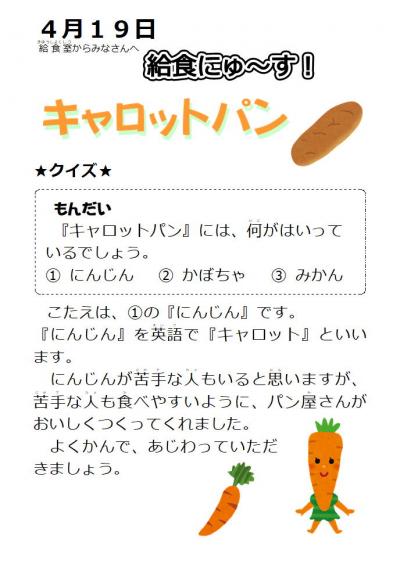 ４月１９日
給食室からみなさんへ
給食にゅ～す！
キャロットパン
★クイズ★
もんだい
『キャロットパン』には、何がはいって
いるでしょう。
① にんじん ② かぼちゃ ③ みかん
こたえは、①の『にんじん』です。
『にんじん』を英語で『キャロット』といい
ます。
にんじんが苦手な人もいると思いますが、
苦手な人も食べやすいように、パン屋さんが
おいしくつくってくれました。
よくかんで、あじわっていただ
きましょう。